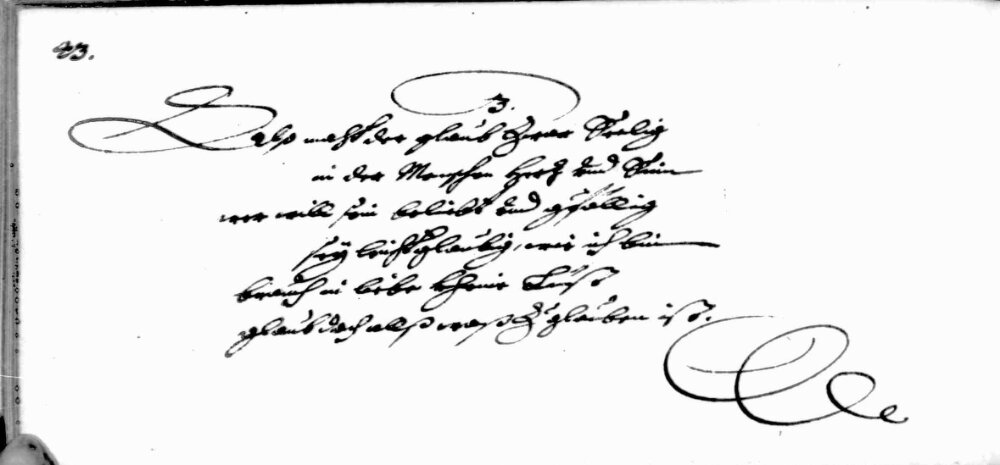 83.
3.
alß macht der glaub Zwar Seelig
in der Menschen Hertz und Sinn
wer will sein beliebt und gefällig
sey leichtglaubig, wie ich bin
brauch in liebe kheine List
glaub doch alß waß Zu glauben ist.